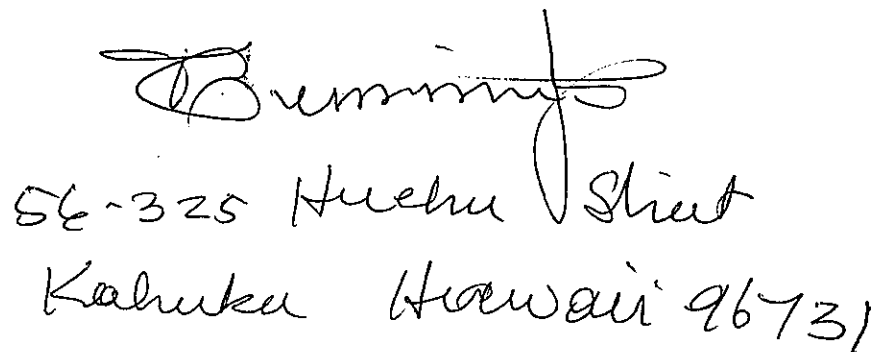 56-325 Huehu Street
Kahuku Hawaii 96731